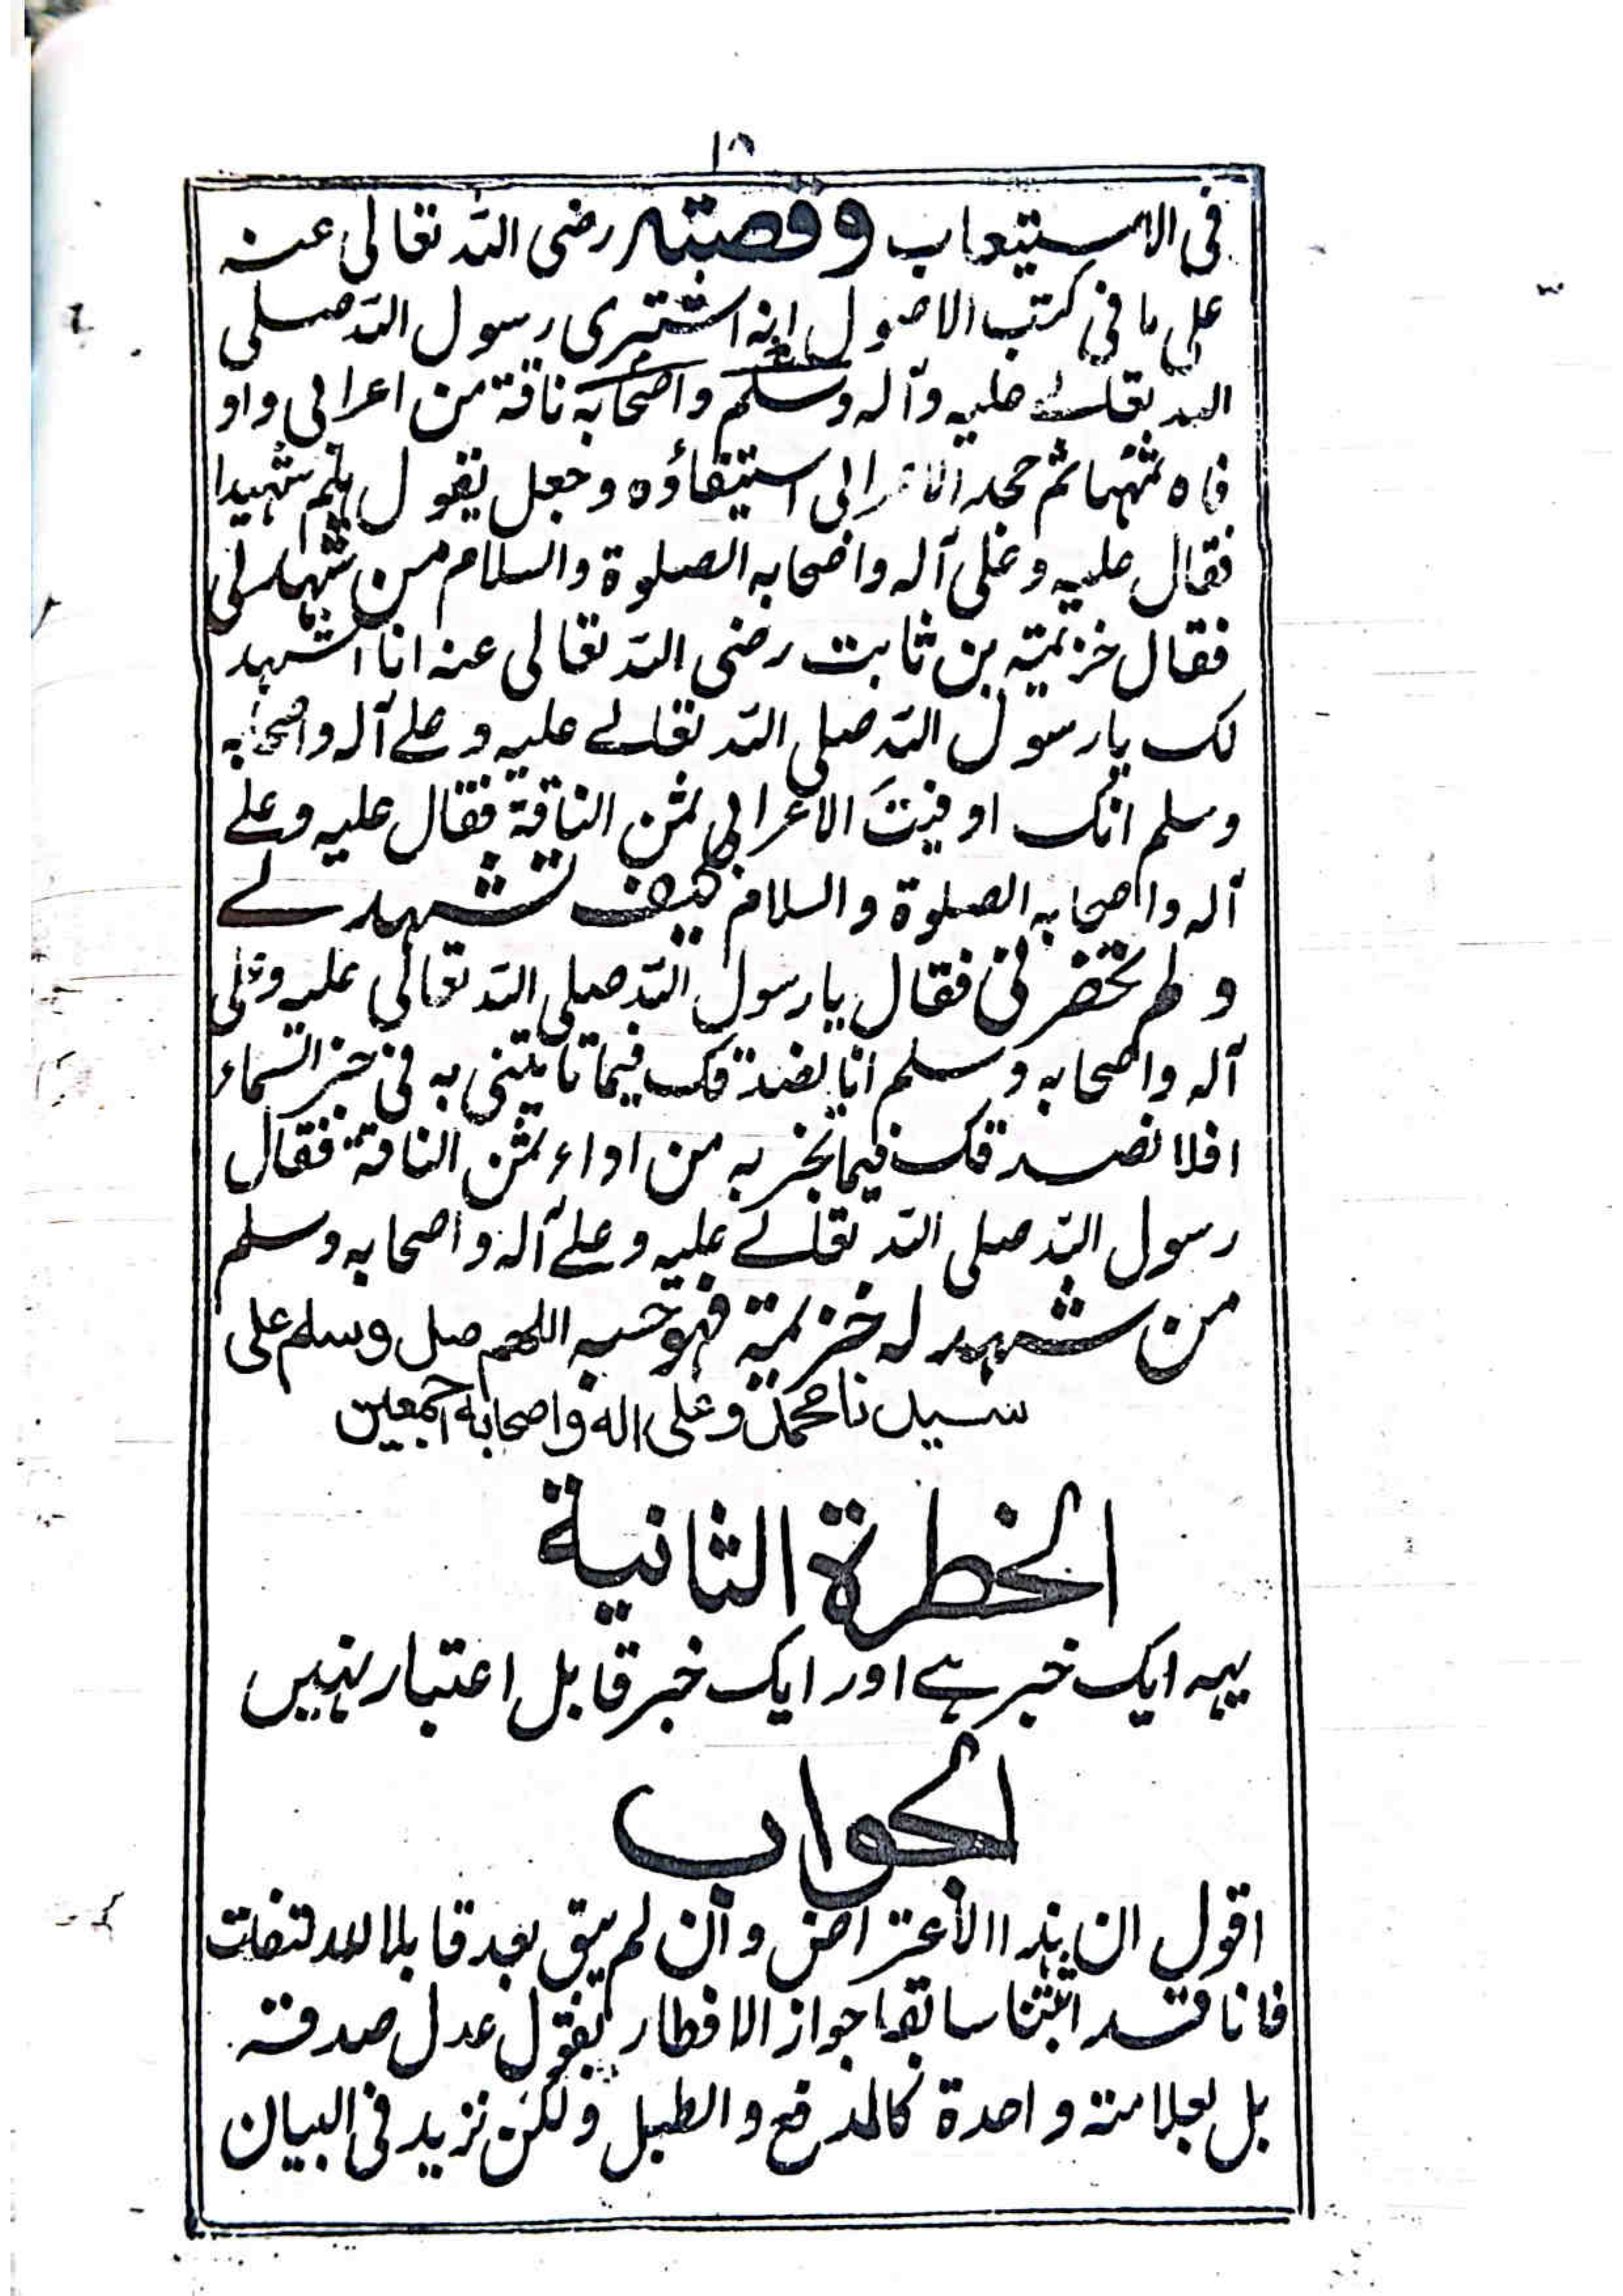 ١٥
فی الاستیعاب وقصته رضی اللہ تعالی عنه
علی ما فی کتب الاصول انه اشتری رسول اللہ صلی
اللہ تعالے علیه وآله وسلم واصحابه ناقة من اعرابی واو
فاه ثمنها ثم جحد الاعرابی استیفاؤه وجعل یقول هلم شهیدا
فقال علیه وعلی آله واصحابه الصلوة والسلام من شهد لی
فقال خزیمة بن ثابت رضی اللہ تعالی عنه انا اشهد
لک یا رسول اللہ صلی اللہ تعالے علیه وعلے آله واصحابه
وسلم انک اوفیتَ الاعرابی ثمن الناقة فقال علیه وعلے
آله واصحابه الصلوة والسلام کیف تشهد لے
ولم تحضرنی فقال یا رسول اللہ صلی اللہ تعالی علیه وعلی
آله واصحابه وسلم انا نصدقک فیما تاتینی به فی خبر السماء
افلا نصدقک فیما تخبر به من اداء ثمن الناقة فقال
رسول اللہ صلی اللہ تعالے علیه وعلے آله واصحابه وسلم
من شهد له خزیمة فهو حسبه اللهم صل وسلم علی
سیدنا محمد وعلی اله واصحابه اجمعین
الخطرة الثانیة
یہہ ایک خبر ہے اور ایک خبر قابل اعتبار نہیں
الجواب
اقول ان هذا الاعتراض وان لم یبق بعد قابلا للالتفات
فانا قد اثبتنا سابقا جواز الافطار بقول عدل صدقه
بل بعلامة واحدة کالمدفع والطبل ولکن نزید فی البیان